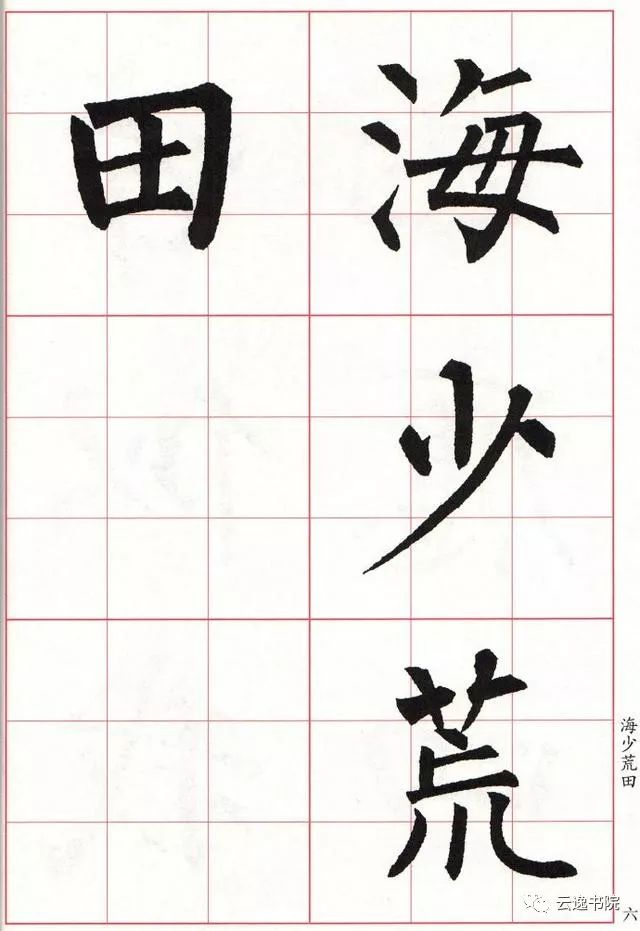 海少荒
田
海少荒田
六
云逸书院